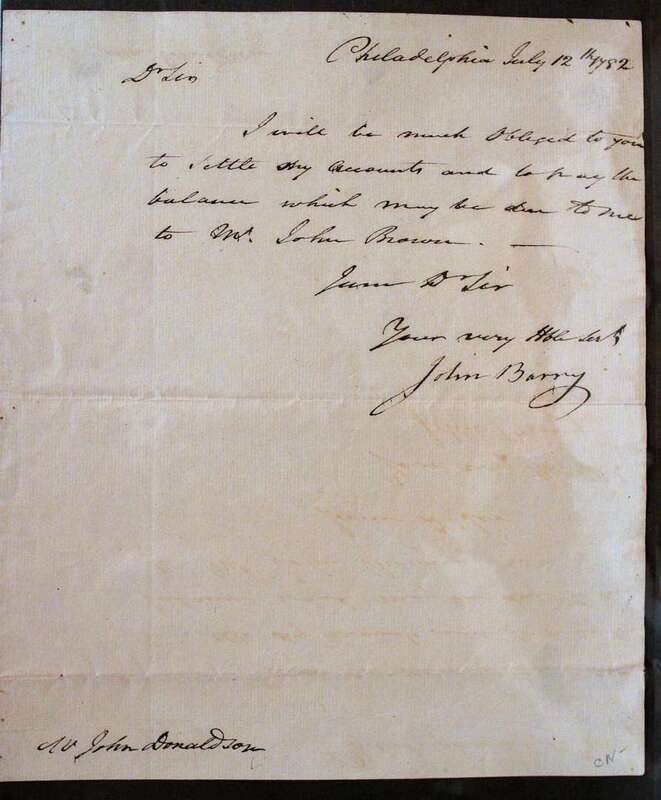 Philadelphia July 12th 1782
Dr Sir
I will be much Obliged to you
to Settle my Accounts and to pay the
balance which may be due to me
to Mr. John Brown. —
I am Dr Sir
Your very Hble Servt
John Barry
Mr John Donaldson